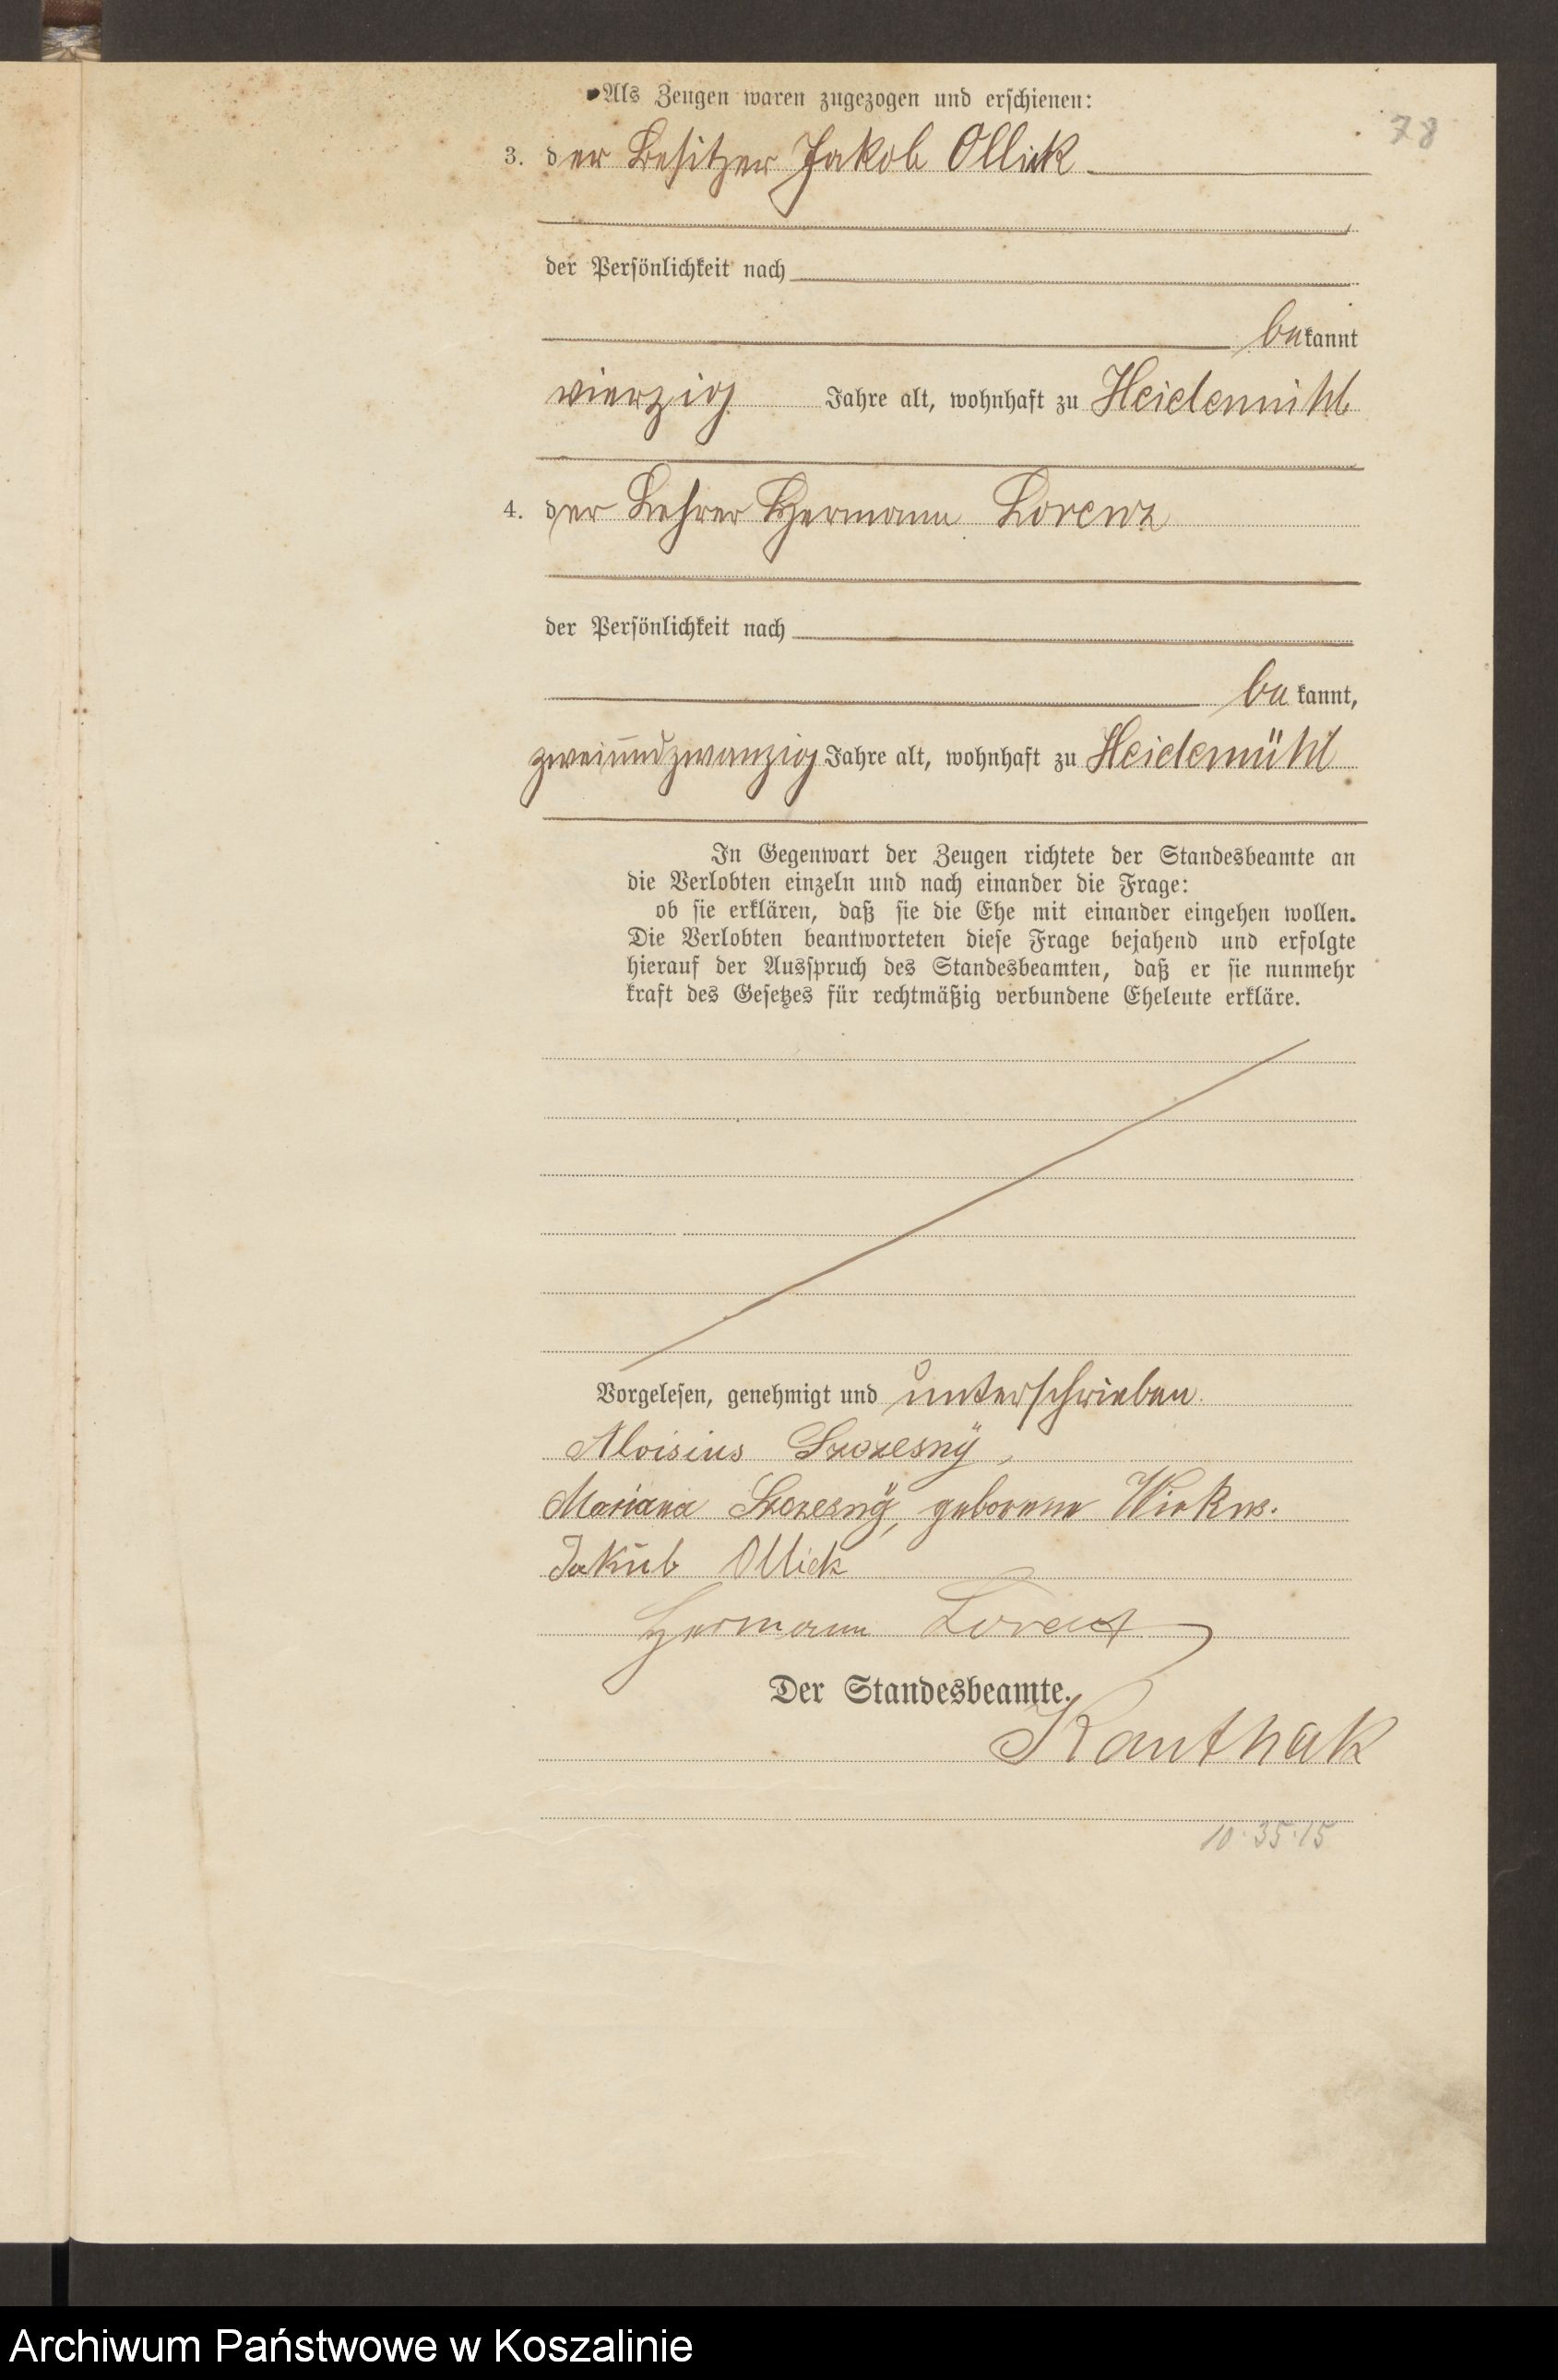 Als Zeugen waren zugezogen und erschienen:
78
3. der Besitzer Jakob Ollick
der Persönlichkeit nach
bekannt
vierzig Jahre alt, wohnhaft zu Heidemühl
4. der Lehrer Hermann Lorenz
der Persönlichkeit nach
bekannt,
zweiundzwanzig Jahre alt, wohnhaft zu Heidemühl
In Gegenwart der Zeugen richtete der Standesbeamte an
die Verlobten einzeln und nach einander die Frage:
ob sie erklären, daß sie die Ehe mit einander eingehen wollen.
Die Verlobten beantworteten diese Frage bejahend und erfolgte
hierauf der Ausspruch des Standesbeamten, daß er sie nunmehr
kraft des Gesetzes für rechtmäßig verbundene Eheleute erkläre.
Vorgelesen, genehmigt und unterschrieben
Aloisius Szczesny,
Mariana Szczesny, geborene
Jakub Ollick
Hermann Lorenz
Der Standesbeamte.
Kanthak
10.35.15
Archiwum Państwowe w Koszalinie